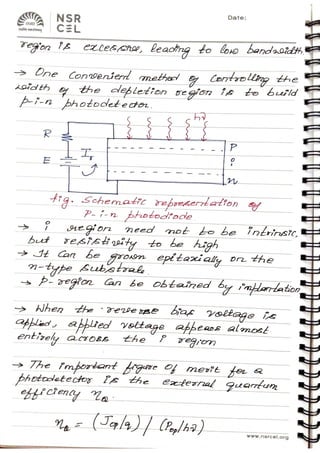 NSR
CEL
Date:
region is excessive, leading to low bandwidth
→ One Convenient method of Controlling the
width of the depletion region is to build
p-i-n photodetector.
hν
R
E
Ir
P
i
n
fig. Schematic representation of
P-i-n photodiode
→ i region need not to be intrinsic,
but resistivity to be high
→ It Can be grown epitaxially on the
n-type substrate
→ P-region Can be obtained by implantation
→ When the reverse bias voltage is
applied, applied voltage appears almost
entirely across the i region
→ The important figure of merit for a
photodetector is the external quantum
efficiency ηQ
ηQ = (Jop/q) / (Pop/hν)
www.nsrcel.org